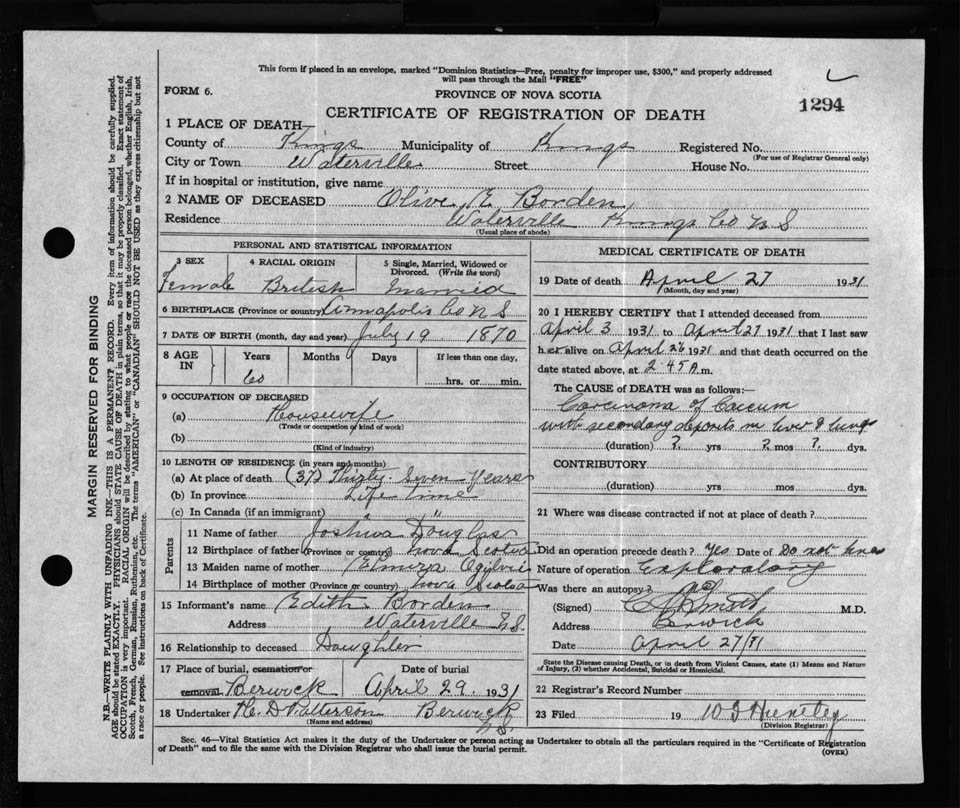 This form if placed in an envelope, marked "Dominion Statistics—Free, penalty for improper use, $300," and properly addressed
will pass through the Mail "FREE"
FORM 6.
PROVINCE OF NOVA SCOTIA
1294
CERTIFICATE OF REGISTRATION OF DEATH
1 PLACE OF DEATH—
County of Kings Municipality of Kings Registered No.
(For use of Registrar General only)
City or Town Waterville Street House No.
If in hospital or institution, give name
2 NAME OF DECEASED Olive E Borden
Residence Waterville Kings Co N S
(Usual place of abode)
PERSONAL AND STATISTICAL INFORMATION
3 SEX 4 RACIAL ORIGIN 5 Single, Married, Widowed or
Divorced. (Write the word)
Female British Married
6 BIRTHPLACE (Province or country) Annapolis Co N S
7 DATE OF BIRTH (month, day and year) July 19 1870
8 AGE IN Years Months Days If less than one day,
60 hrs. or min.
9 OCCUPATION OF DECEASED
(a) Housewife
(Trade or occupation or kind of work)
(b)
(Kind of industry)
10 LENGTH OF RESIDENCE (in years and months)
(a) At place of death (37) Thirty Seven Years
(b) In province Life time
(c) In Canada (if an immigrant) "
Parents
11 Name of father Joshua Douglas
12 Birthplace of father (Province or country) Nova Scotia
13 Maiden name of mother Elmira Ogilvie
14 Birthplace of mother (Province or country) Nova Scotia
15 Informant's name Edith Borden
Address Waterville N.S.
16 Relationship to deceased Daughter
17 Place of burial, cremation or Date of burial
removal. Berwick April 29 1931
18 Undertaker H. D Patterson Berwick
(Name and address) N.S.
MEDICAL CERTIFICATE OF DEATH
19 Date of death April 27 1931
(Month, day and year)
20 I HEREBY CERTIFY that I attended deceased from
April 3 1931 to April 27 1931 that I last saw
h er alive on April 26 1931 and that death occurred on the
date stated above, at 2.45 A.m.
The CAUSE of DEATH was as follows:—
Carcinoma of Caecum
with secondary deposits in liver & lungs
(duration) ? yrs ? mos ? dys.
CONTRIBUTORY
(duration) yrs. mos. dys.
21 Where was disease contracted if not at place of death?
Did an operation precede death? Yes Date of Do not know
Nature of operation Exploratory
Was there an autopsy? no
(Signed) Smith M.D.
Address Berwick
Date April 27/31
State the Disease causing Death, or in death from Violent Causes, state (1) Means and Nature
of Injury, (2) whether Accidental, Suicidal or Homicidal.
22 Registrar's Record Number
23 Filed 19
(Division Registrar)
Sec. 46—Vital Statistics Act makes it the duty of the Undertaker or person acting as Undertaker to obtain all the particulars required in the "Certificate of Registration
of Death" and to file the same with the Division Registrar who shall issue the burial permit.
(OVER)
MARGIN RESERVED FOR BINDING
N.B.—WRITE PLAINLY WITH UNFADING INK—THIS IS A PERMANENT RECORD. Every item of information should be carefully supplied.
AGE should be stated EXACTLY. PHYSICIANS should STATE CAUSE OF DEATH in plain terms, so that it may be properly classified. Exact statement of
OCCUPATION is very important. RACIAL ORIGIN will be described by stating to what people or race the deceased person belonged, whether English, Irish,
Scotch, French, German, Russian, Ruthenian, etc. The terms "AMERICAN" or "CANADIAN" SHOULD NOT BE USED as they express citizenship but not
a race or people. See instructions on back of Certificate.